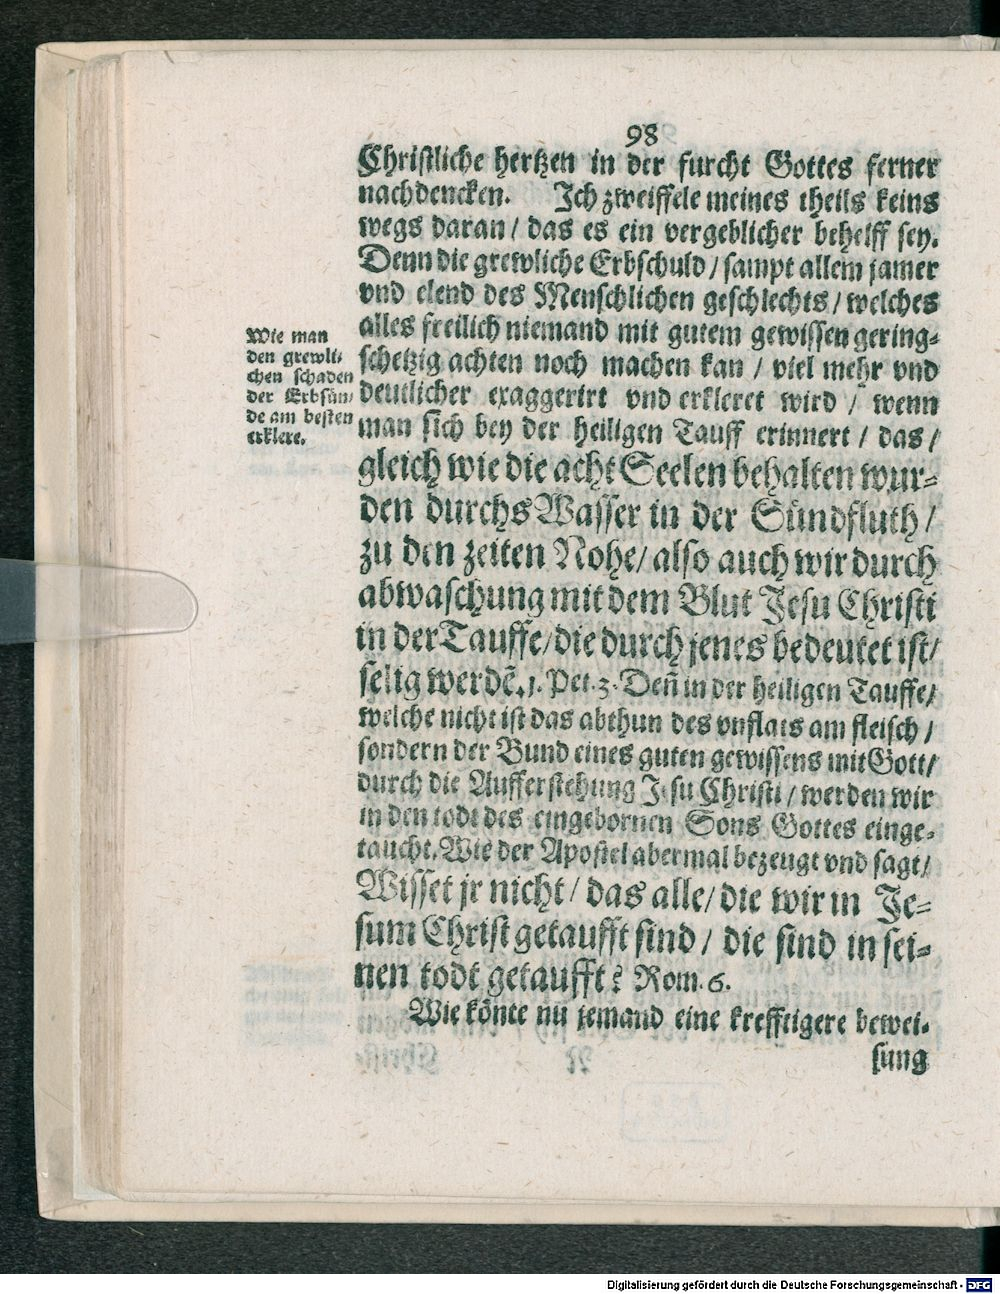 98
Christliche hertzen in der furcht Gottes ferner
nachdencken. Ich zweiffele meines theils keins
wegs daran / das es ein vergeblicher behelff sey.
Denn die grewliche Erbschuld / sampt allem jamer
vnd elend des Menschlichen geschlechts / welches
alles freilich niemand mit gutem gewissen gering-
schetzig achten noch machen kan / viel mehr vnd
deutlicher exaggerirt vnd erkleret wird / wenn
man sich bey der heiligen Tauff erinnert / das /
gleich wie die acht Seelen behalten wur-
den durchs Wasser in der Sündfluth /
zu den zeiten Nohe / also auch wir durch
abwaschung mit dem Blut Jesu Christi
in der Tauffe / die durch jenes bedeutet ist /
selig werdē. 1. Pet. 3. Deñ in der heiligen Tauffe /
welche nicht ist das abthun des vnflats am fleisch /
sondern der Bund eines guten gewissens mit Gott /
durch die Aufferstehung Jesu Christi / werden wir
in den todt des eingebornen Sons Gottes einge-
taucht. Wie der Apostel abermal bezeugt vnd sagt /
Wisset jr nicht / das alle / die wir in Je-
sum Christ getaufft sind / die sind in sei-
nen todt getaufft? Rom. 6.
Wie könte nu jemand eine krefftigere bewei-
sung
Wie man
den grewli-
chen schaden
der Erbsün-
de am besten
erklere.
Digitalisierung gefördert durch die Deutsche Forschungsgemeinschaft - DFG